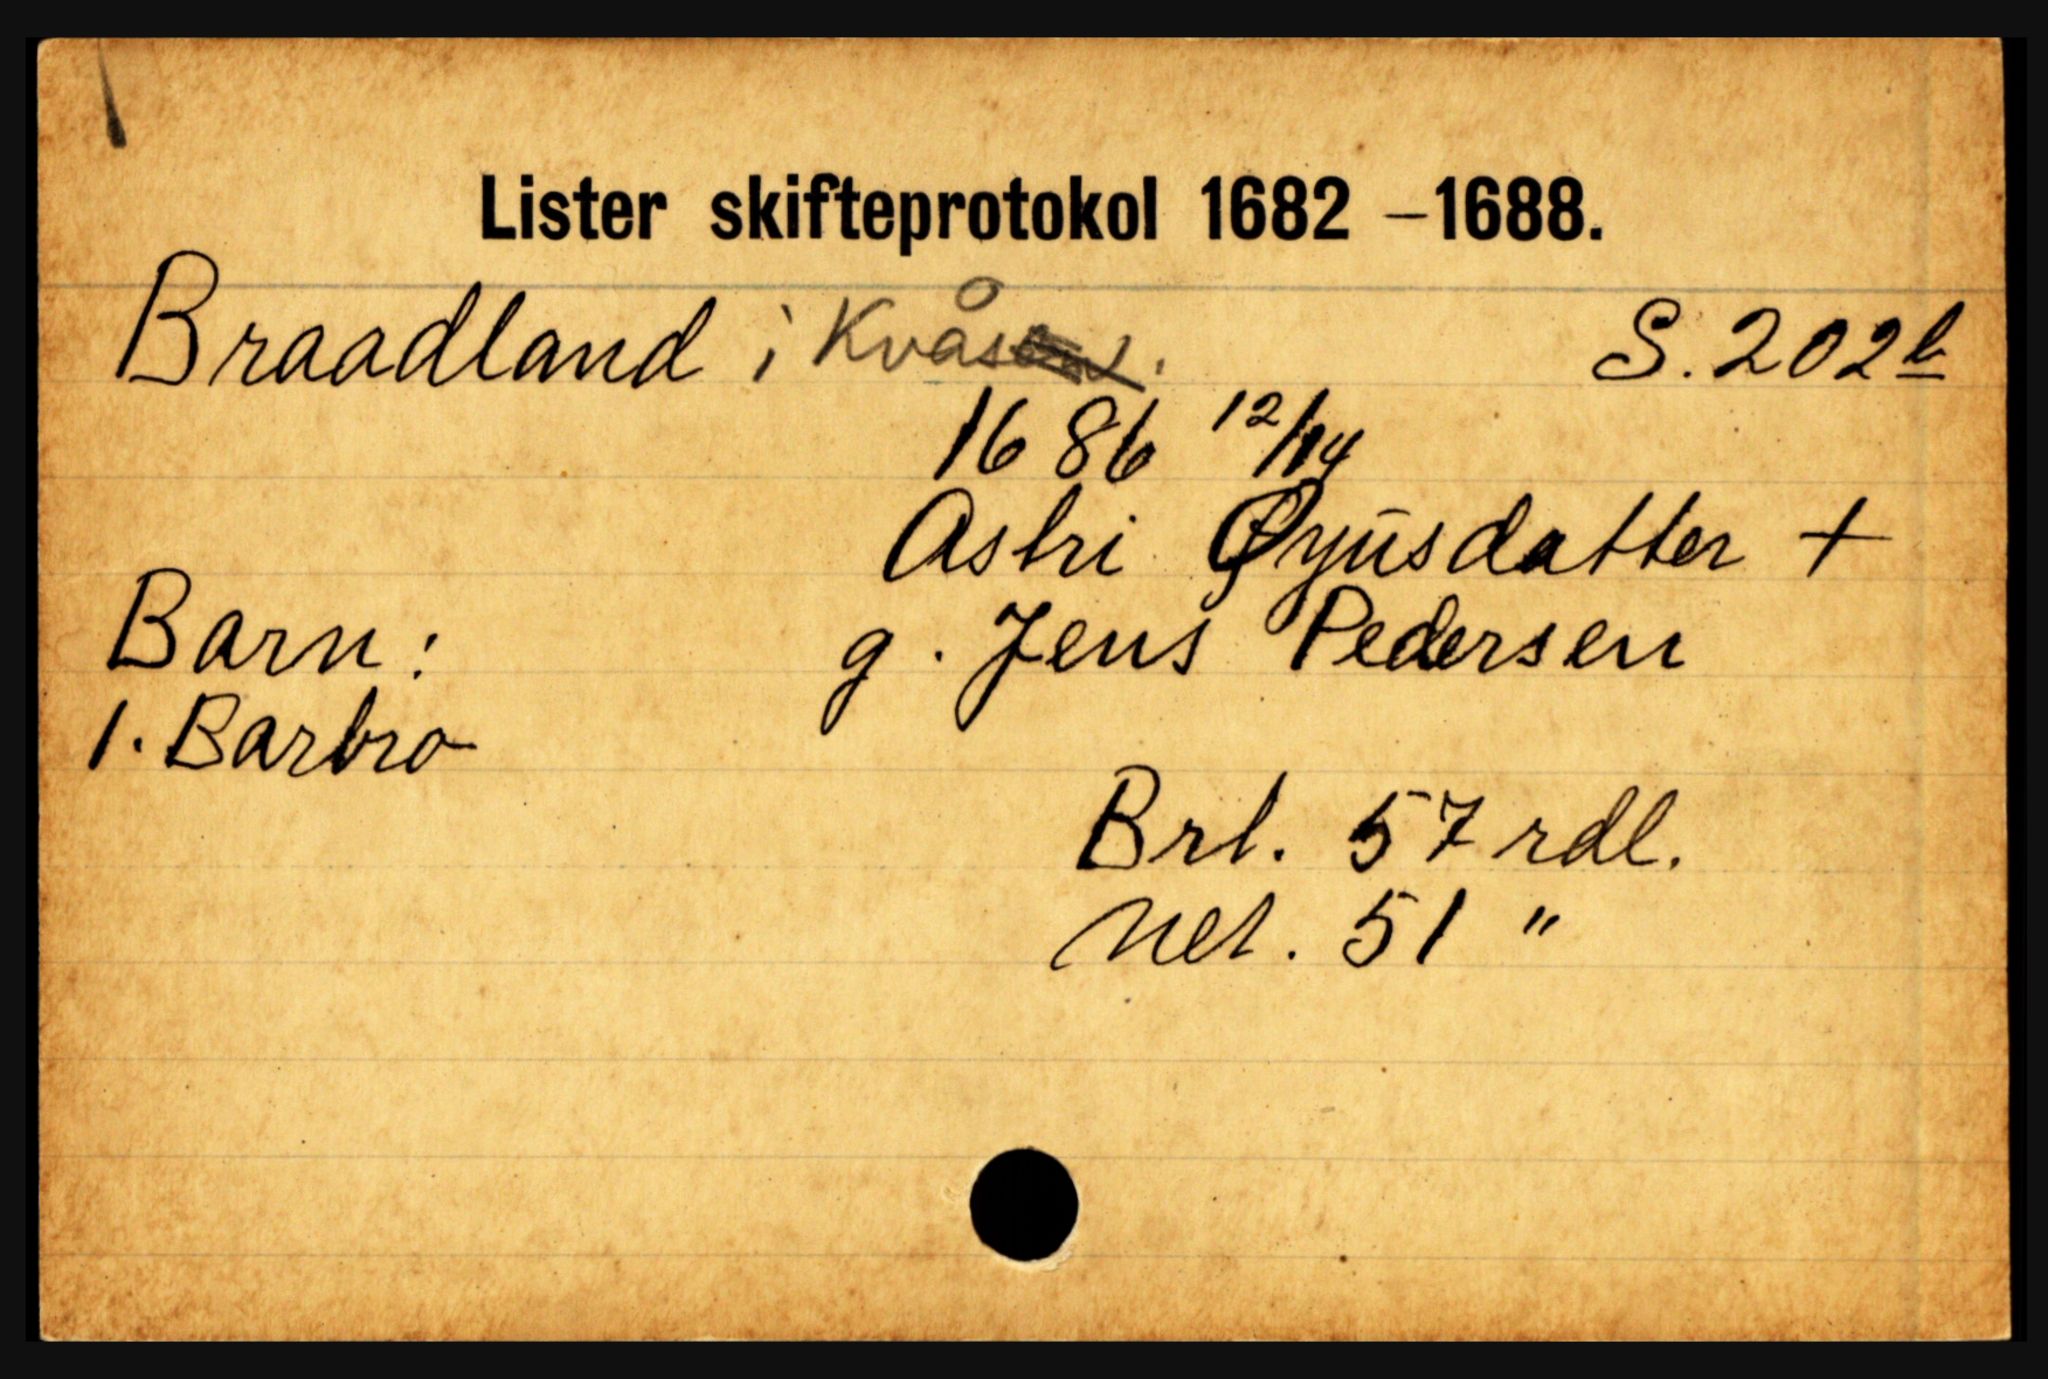 Lister skifteprotokol 1682 – 1688.
Braadland i Kvås S. 202b
1686 12/14
Astri Øyusdatter +
Barn: g. Jens Pedersen
1. Barbro
Brt. 57 rdl.
Net. 51 "